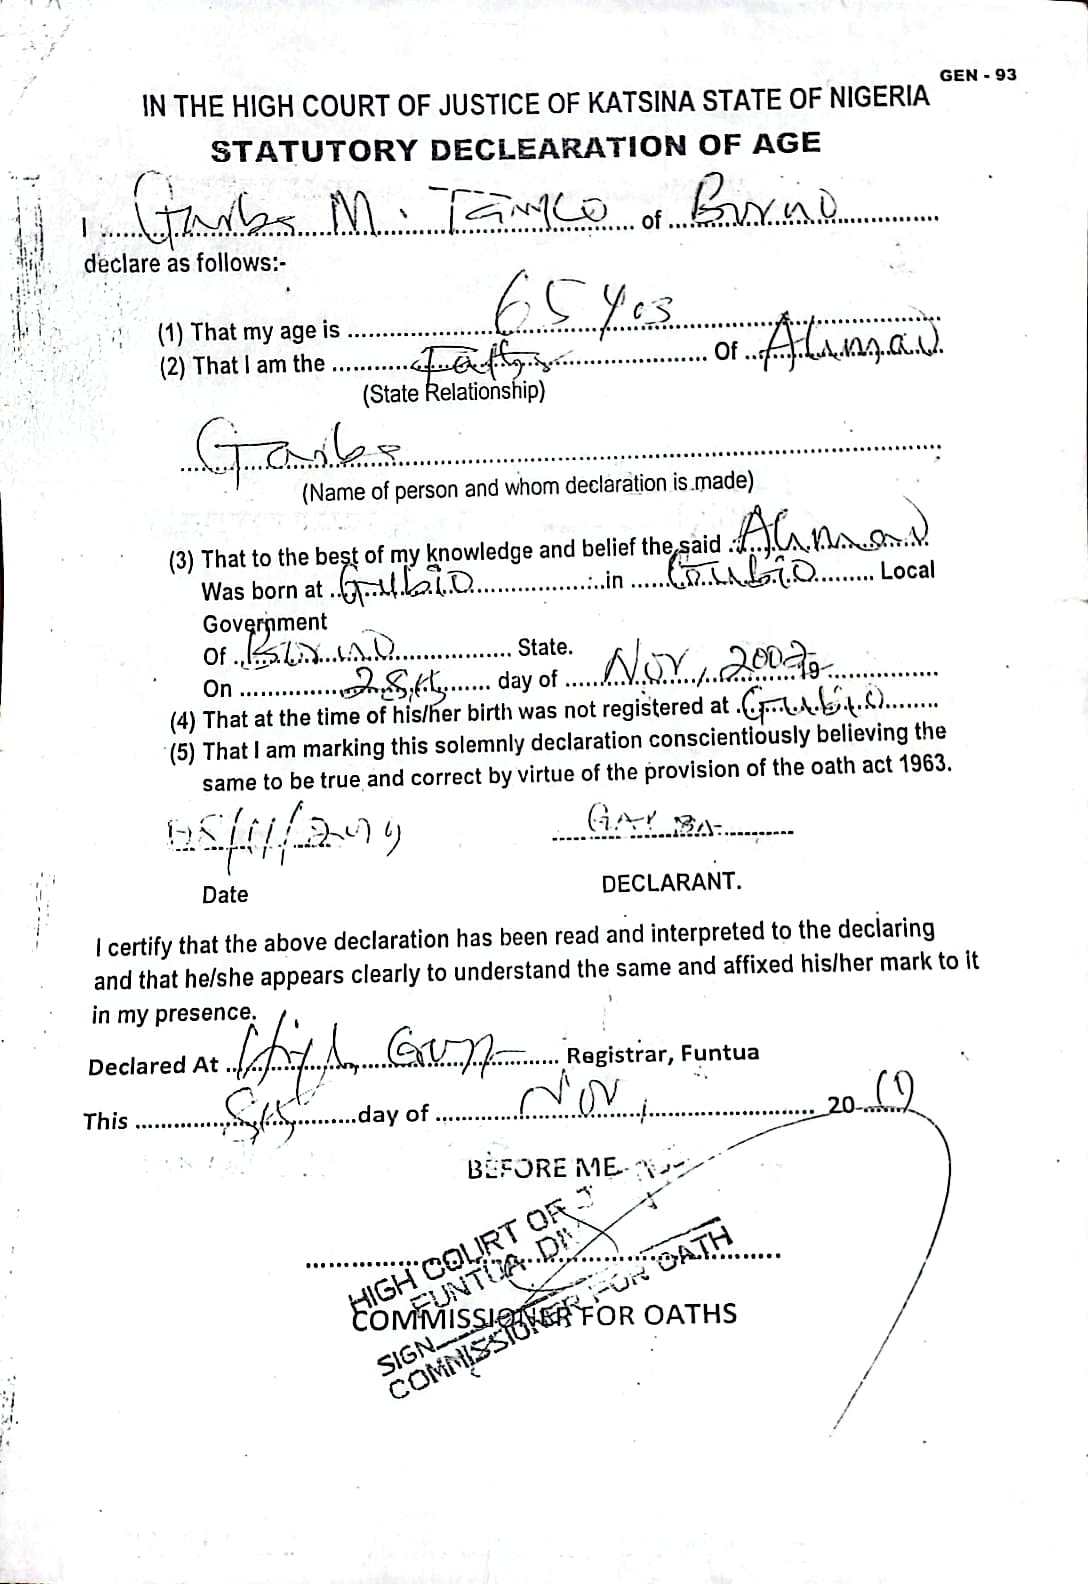 GEN - 93
IN THE HIGH COURT OF JUSTICE OF KATSINA STATE OF NIGERIA
STATUTORY DECLEARATION OF AGE
I Garba M. of Borno
declare as follows:-
(1) That my age is 65 Yrs
(2) That I am the Of Ahmad
(State Relationship)
Garba
(Name of person and whom declaration is made)
(3) That to the best of my knowledge and belief the said Ahmad
Was born at Gubio in Gubio Local
Government
Of Borno State.
On day of Nov, 2002
(4) That at the time of his/her birth was not registered at Gubio
(5) That I am marking this solemnly declaration conscientiously believing the
same to be true and correct by virtue of the provision of the oath act 1963.
GARBA
Date
DECLARANT.
I certify that the above declaration has been read and interpreted to the declaring
and that he/she appears clearly to understand the same and affixed his/her mark to it
in my presence.
Declared At High Court Registrar, Funtua
This day of Nov, 2019
BEFORE ME
HIGH COURT OF J
FUNTUA DIV
COMMISSIONER FOR OATHS
SIGN
COMMISSIONER FOR OATH